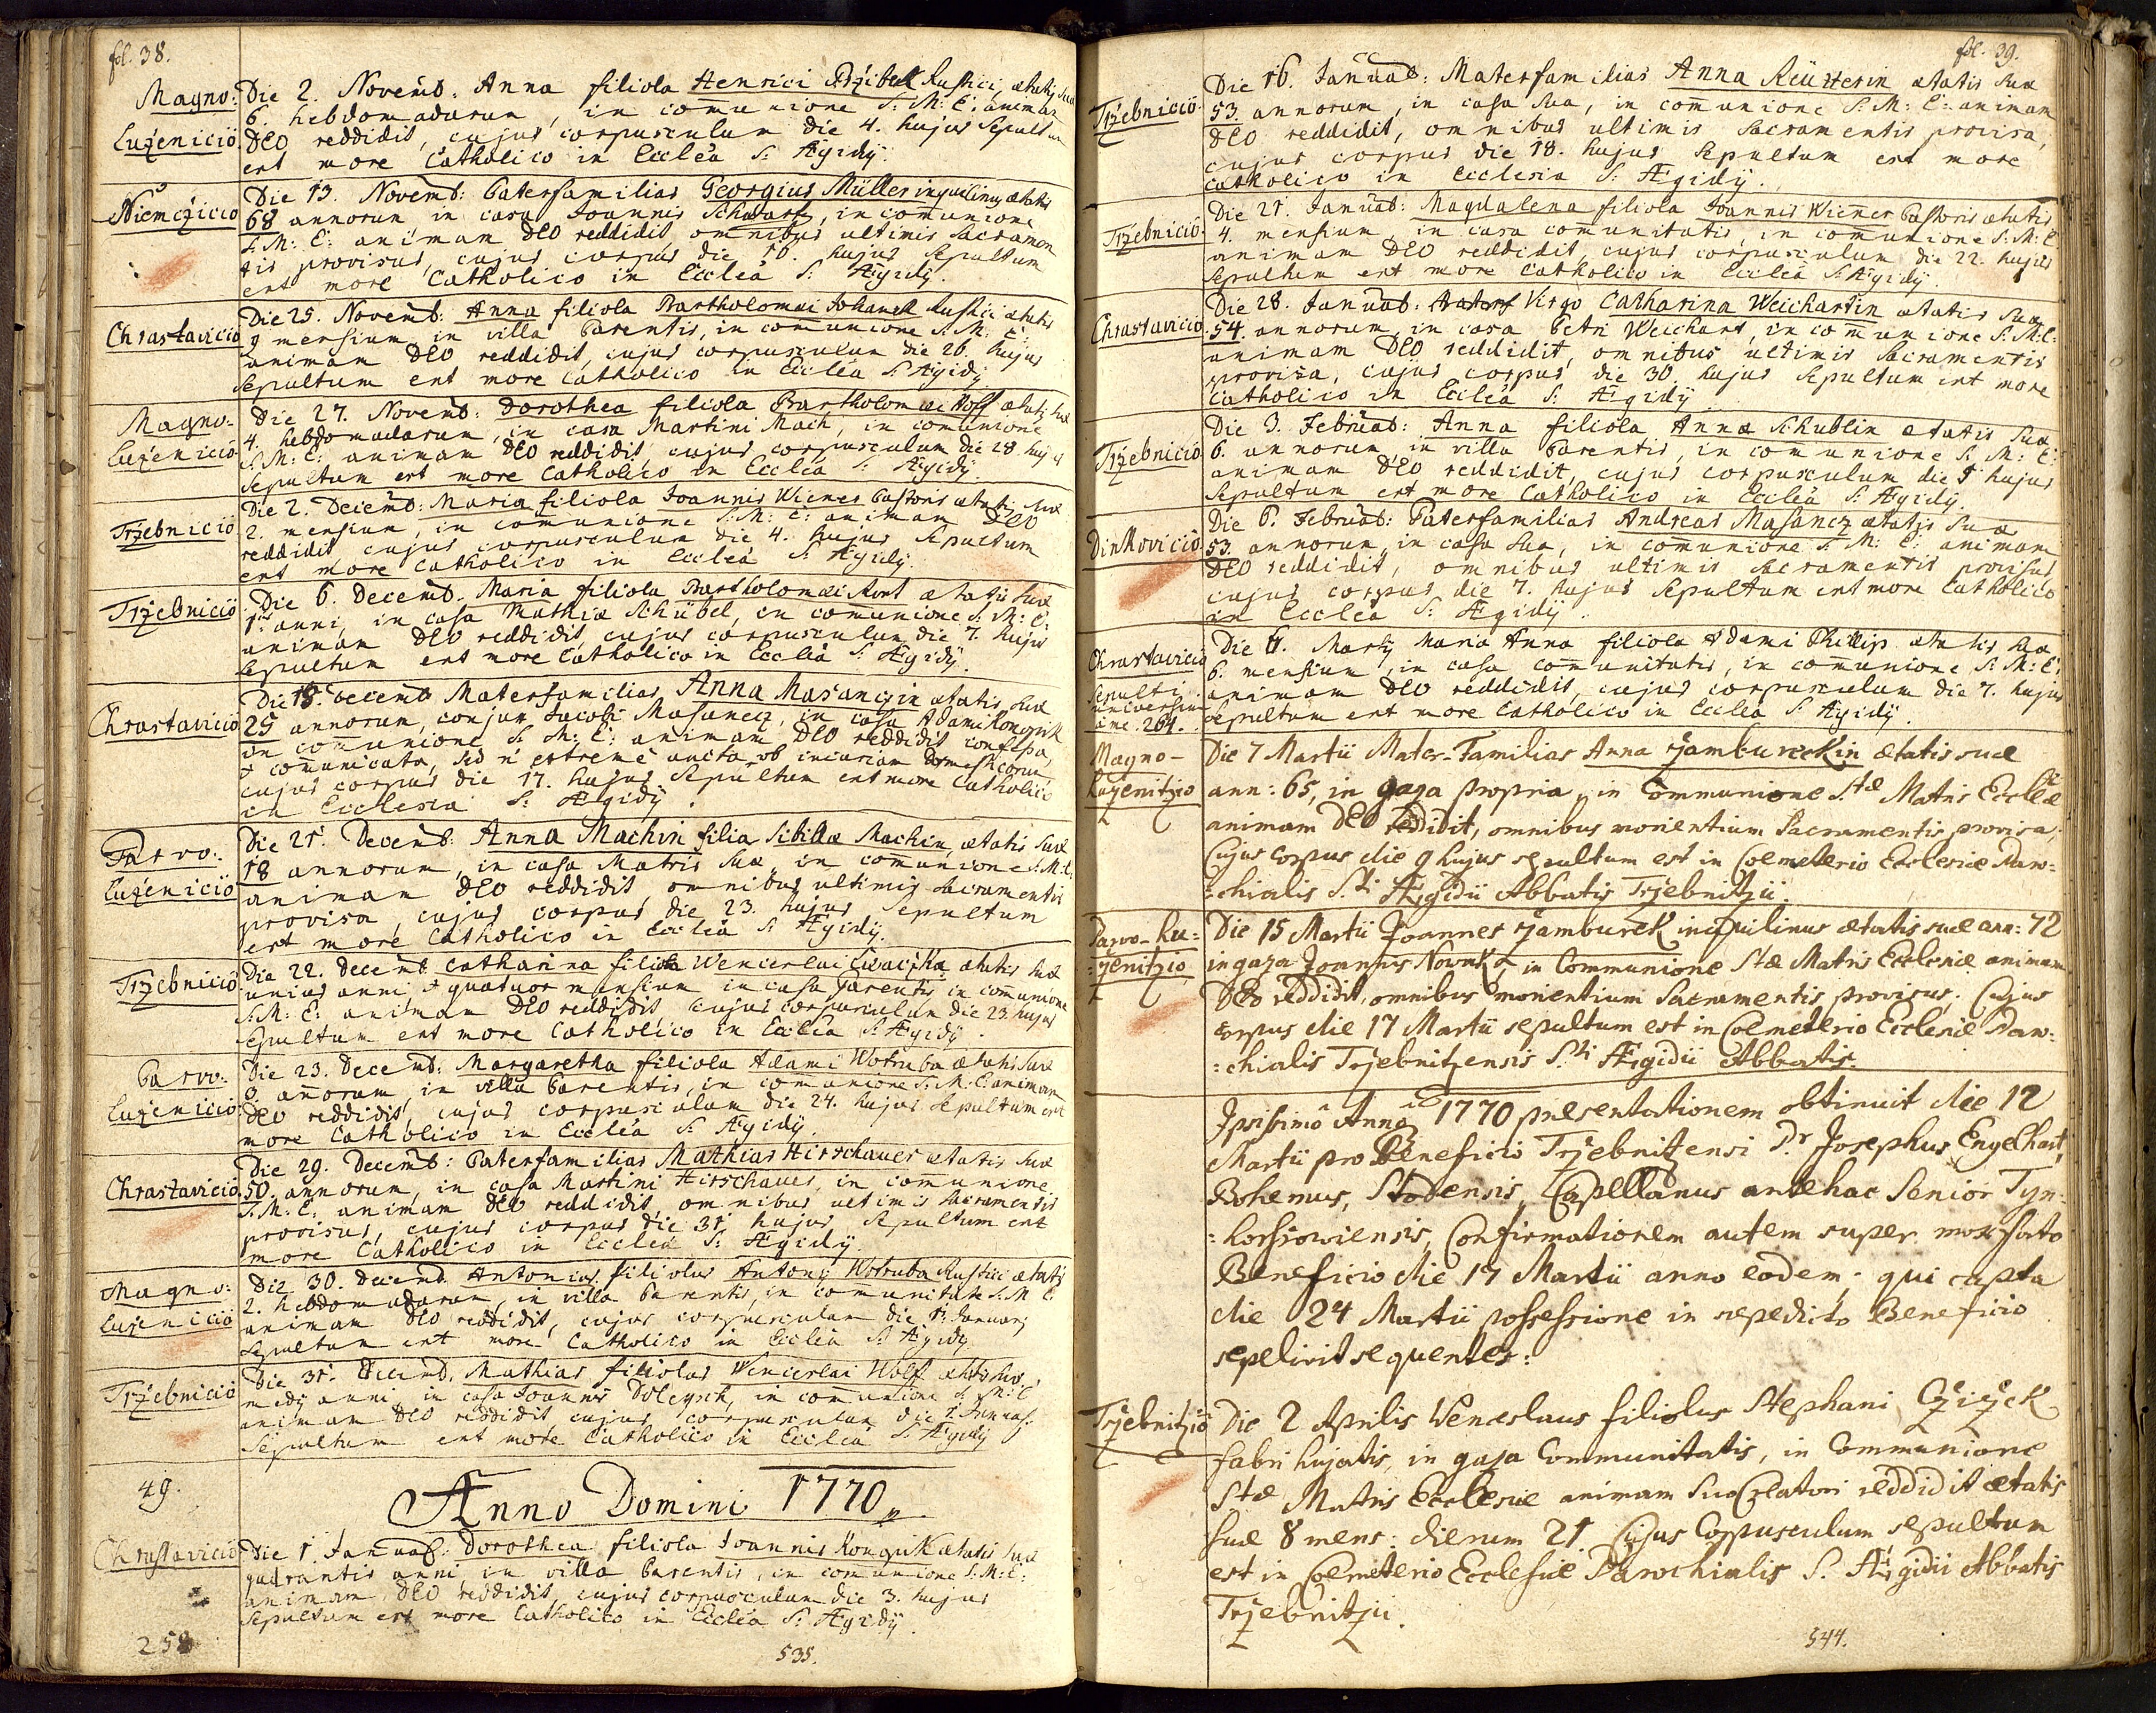 fol. 38.
Magno: Luženicio
Die 2. Novemb. Anna filiola Henrici Przibek Rustici, ætatis suæ
6. hebdomadarum, in comunione S: M: E: animam
DEO reddidit, cujus corpusculum die 4. hujus Sepultum
est more Catholico in Ecclea S: Ægidÿ.
Niemčicio
Die 13. Novemb: Paterfamilias Georgius Müller inquilinus ætatis
68 annorum in casa Joannis Schwarz, in comunione
S: M: E: animam DEO reddidit omnibus ultimis Sacramen
tis provisus, cujus corpus die 16. hujus Sepultum
est more Catholico in Ecclea S: Ægidÿ.
Chrastavicio
Die 25. Novemb: Anna filiola Bartholomæi Johanek Rustici ætatis
9 mensium in villa Parentis, in comunione S: M: E:
animam DEO reddidit, cujus corpusculum die 26. hujus
Sepultum est more Catholico in Ecclea S: Ægidÿ
Magno: Luženicio
Die 27. Novemb: Dorothea filiola Bartholomæi Wolf ætatis suæ
4. hebdomadarum, in casa Martini Mach, in comunione
S: M: E: animam DEO reddidit, cujus corpusculum die 28. hujus
Sepultum est more Catholico in Ecclea S: Ægidÿ.
Tržebnicio
Die 2. Decemb: Maria filiola Joannis Wiener Pastoris ætatis suæ
2. mensium, in comunione S: M: E: animam DEO
reddidit, cujus corpusculum die 4. hujus Sepultum
est more Catholico in Ecclea S: Ægidÿ.
Tržebnicio
Die 6. Decemb. Maria filiola Bartholomæi Kont ætatis suæ
1. anni, in casa Mathiæ Schübel, in comunione S: M: E:
animam DEO reddidit, cujus corpusculum die 7. hujus
Sepultum est more Catholico in Ecclea S: Ægidÿ.
Chrastavicio
Die 15. Decemb Materfamilias Anna Masanczin ætatis suæ
25 annorum, conjux Jacobi Masanecz, in casa Adami Konopik
in comunione S: M: E: animam DEO reddidit confessa,
& comunicata, sed n extreme uncta ob incuriam domesticorum,
cujus corpus die 17. hujus Sepultum est more Catholico
in Ecclesia S: Ægidÿ.
Parvo: Luženicio
Die 21. Decemb: Anna Machin filia Sibillæ Machin, ætatis suæ
18 annorum, in casa Matris suæ, in comunione S: M: E:
animam DEO reddidit omnibus ultimis Sacramentis
provisa, cujus corpus die 23. hujus Sepultum
est more Catholico in Ecclea S: Ægidÿ.
Tržebnicio
Die 22. Decemb Catharina filiola Wenceslai Ewaczka ætatis suæ
unius anni, & quatuor mensium in casa Parentis in comunione
S: M: E: animam DEO reddidit, cujus corpusculum die 23. hujus
Sepultum est more Catholico in Ecclea S: Ægidÿ.
Parvo: Luženicio
Die 23. Decemb: Margaretha filiola Adami Wotruba ætatis suæ
3. annorum, in villa Parentis, in comunione S: M: E: animam
DEO reddidit, cujus corpusculum die 24. hujus Sepultum est
more Catholico in Ecclea S: Ægidÿ.
Chrastavicio
Die 29. Decemb: Paterfamilias Mathias Hirschauer ætatis suæ
50. annorum, in casa Martini Hirschauer, in comunione
S: M: E: animam DEO reddidit, omnibus ultimis Sacramentis
provisus, cujus corpus die 31 hujus Sepultum est
more Catholico in Ecclea S: Ægidÿ.
Magno: Luženicio
Die 30. Decemb Antonius filiolus Antonÿ Wotruba Rustici ætatis
2. hebdomadarum, in villa Parentis, in comunitate S: M: E:
animam DEO reddidit, cujus corpusculum die 1. Januarÿ
Sepultum est more Catholico in Ecclea S: Ægidÿ
Tržebnicio
Die 31. Decemb. Mathias filiolus Wenceslai Wolf ætatis suæ
medÿ anni in casa Joannis Doleysch, in comunione S: M: E:
animam DEO reddidit, cujus corpusculum die 2. Januar:
Sepultum est more Catholico in Ecclea S: Ægidÿ
49.
Anno Domini 1770
Chrastavicio
Die 1. Januar: Dorothea filiola Joannis Konopik ætatis suæ
quadrantis anni, in villa Parentis, in comunione S: M: E:
animam DEO reddidit, cujus corpusculum die 3. hujus
Sepultum est more Catholico in Ecclea S: Ægidÿ.
258
535.
fol. 39.
Tržebnicio
Die 16. Januar: Materfamilias Anna Reütterin ætatis suæ
53. annorum, in casa sua, in comunione S: M: E: animam
DEO reddidit, omnibus ultimis Sacramentis provisa,
cujus corpus die 18. hujus Sepultum est more
Catholico in Ecclesia S: Ægidÿ.
Tržebnicio
Die 21. Januar: Magdalena filiola Joannis Wiener Pastoris ætatis
4. mensium, in casa comunitatis, in comunione S: M: E:
animam DEO reddidit, cujus corpusculum die 22. hujus
Sepultum est more Catholico in Ecclea S: Ægidÿ.
Chrastavicio
Die 28. Januar: Virgo Catharina Weichartin ætatis suæ
54. annorum, in casa Petri Weichart, in comunione S: M: E:
animam DEO reddidit, omnibus ultimis Sacramentis
provisa, cujus corpus die 30 hujus Sepultum est more
Catholico in Ecclea S: Ægidÿ
Tržebnicio
Die 3. Februar: Anna filiola Annæ Schublin ætatis suæ
6. annorum, in villa Parentis, in comunione S: M: E:
animam DEO reddidit, cujus corpusculum die 5 hujus
Sepultum est more Catholico in Ecclea S: Ægidÿ.
Dinkovicio
Die 6. Februar: Paterfamilias Andreas Masancz ætatis suæ
53. annorum, in casa sua, in comunione S: M: E: animam
DEO reddidit, omnibus ultimis Sacramentis provisus
cujus corpus die 7. hujus Sepultum est more Catholico
in Ecclea S: Ægidÿ.
Chrastavicio
Sepulti universim ... 264.
Die 6. Martÿ Maria Anna filiola Adami Phillip ætatis suæ
6. mensium, in casa comunitatis, in comunione S: M: E:
animam DEO reddidit, cujus corpusculum die 7. hujus
Sepultum est more Catholico in Ecclea S: Ægidÿ.
Magno-Luženitzio
Die 7 Martii Mater-Familias Anna Žamburekin ætatis suæ
ann: 65, in gaza propria, in Communione S.tæ Matris Eccleæ
animam DEO reddidit, omnibus morientium Sacramentis provisa,
Cujus corpus die 9 hujus sepultum est in Coemeterio Ecclesiæ Paro=
=chialis S.ti Ægidii Abbatis Tržebnitzii.
Parvo-Lu=
=ženitzio
Die 15 Martii Joannes Žamburek inquilinus ætatis suæ ann: 72
in gaza Joannis Nowak, in Communione Stæ Matris Ecclesiæ animam
Deo reddidit, omnibus morientium Sacramentis provisus. Cujus
corpus die 17 Martii sepultum est in Coemeterio Ecclesiæ Paro=
=chialis Tržebnitzensis S.ti Ægidii Abbatis.
Ipsissimo Anno 1770 præsentationem obtinuit die 12
Martii pro Beneficio Tržebnitzensi P.r Josephus Engelhart,
Bohemus, Stodensis, Capellanus antehac Senior Tyn=
=horssowiensis, Confirmationem autem super mox fato
Beneficio die 17 Martii anno eodem; qui capta
die 24 Martii possessione in sæpedicto Beneficio
sepelivit sequentes:
Tržebnitzio
Die 2 Aprilis Wenceslaus filiolus Stephani Cžižek
fabri hujatis, in gaza Communitatis, in Communione
Stæ Matris Ecclesiæ animam suo Creatori reddidit ætatis
suæ 8 mens: dierum 21. Cujus Corpusculum sepultum
est in Coemeterio Ecclesiæ Parochialis S. Ægidii Abbatis
Tržebnitzii.
544.